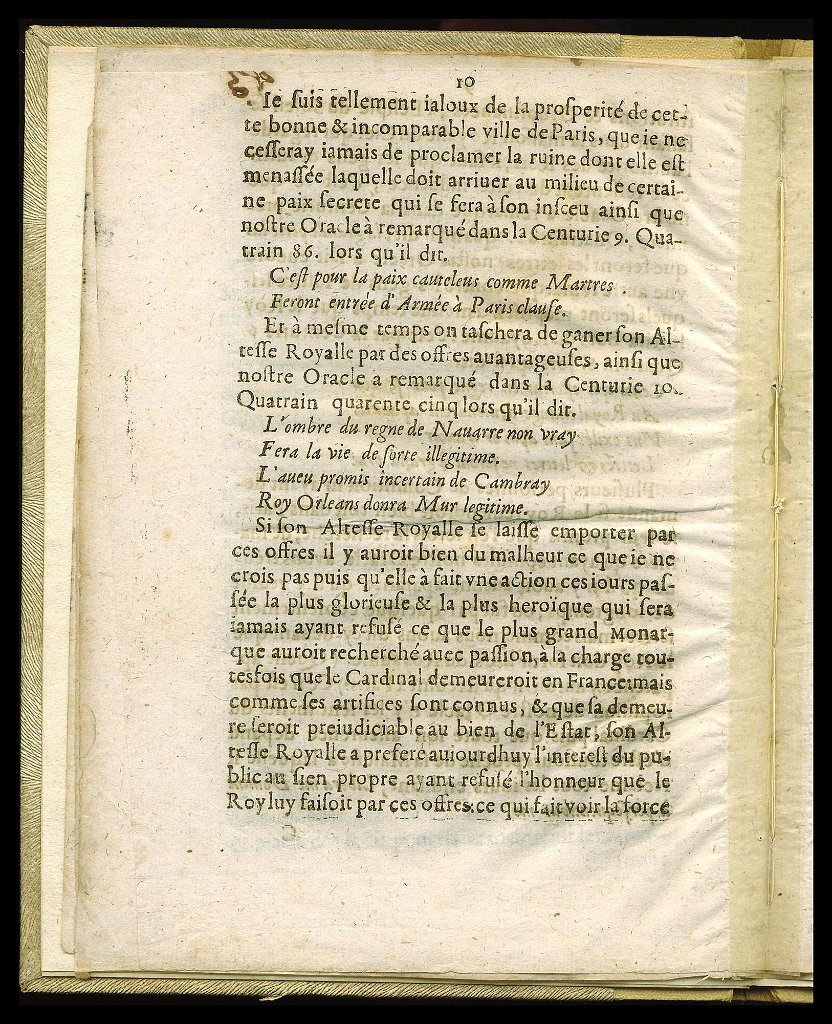 10
Ie ſuis tellement ialoux de la proſperité de cet-
te bonne & incomparable ville de Paris, que ie ne
ceſſeray iamais de proclamer la ruine dont elle eſt
menaſſée laquelle doit arriuer au milieu de certai-
ne paix ſecrete qui ſe fera à ſon inſceu ainſi que
noſtre Oracle à remarqué dans la Centurie 9. Qua-
train 86. lors qu'il dit.
C'eſt pour la paix cauteleus comme Martres
Feront entrée d'Armée à Paris clauſe.
Et à meſme temps on taſchera de ganer ſon Al-
teſſe Royalle par des offres auantageuſes, ainſi que
noſtre Oracle a remarqué dans la Centurie 10.
Quatrain quarente cinq lors qu'il dit.
L'ombre du regne de Nauarre non vray
Fera la vie de ſorte illegitime.
L'aueu promis incertain de Cambray
Roy Orleans donra Mur legitime.
Si ſon Alteſſe Royalle ſe laiſſe emporter par
ces offres il y auroit bien du malheur ce que ie ne
crois pas puis qu'elle à fait vne action ces iours paſ-
ſée la plus glorieuſe & la plus heroïque qui ſera
iamais ayant refuſé ce que le plus grand Monar-
que auroit recherché auec paſſion, à la charge tou-
tesfois que le Cardinal demeureroit en France: mais
comme ſes artifices ſont connus, & que ſa demeu-
re ſeroit preiudiciable au bien de l'Eſtat, ſon Al-
teſſe Royalle a preferé auiourdhuy l'intereſt du pu-
blic au ſien propre ayant refuſé l'honneur que le
Roy luy faiſoit par ces offres: ce qui fait voir la force